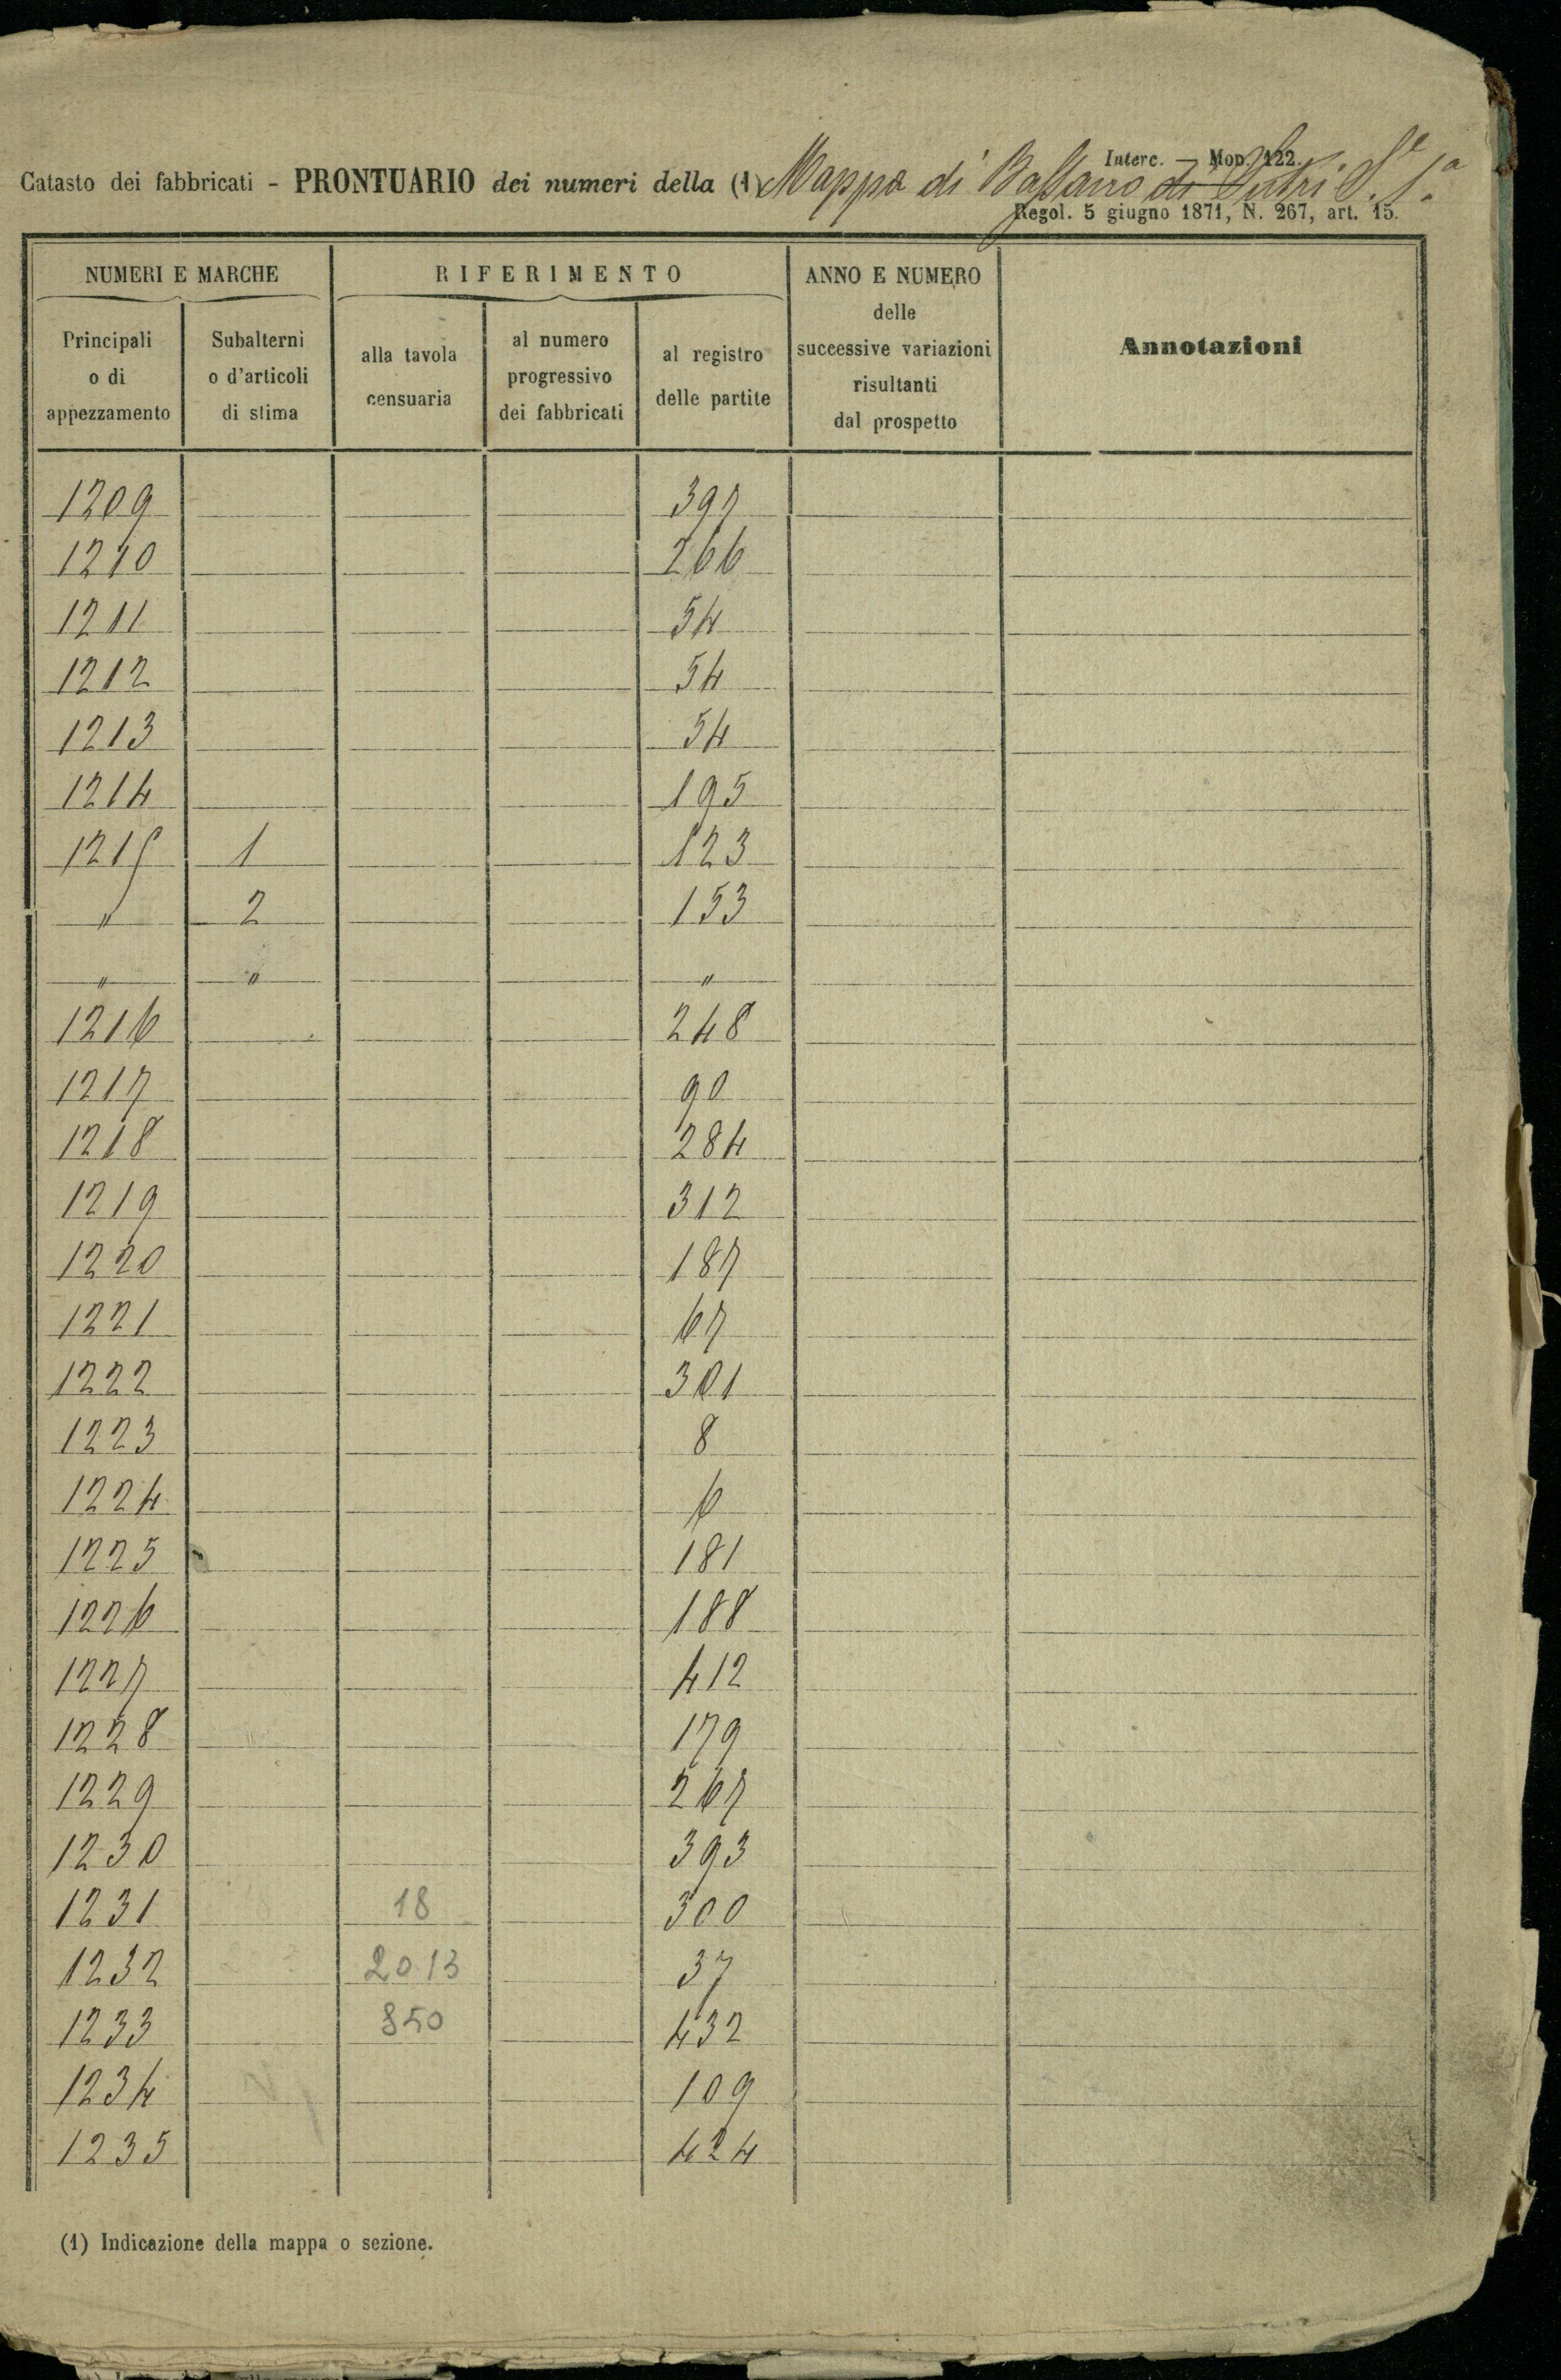 Interc. — Mod. 122.
Catasto dei fabbricati - PRONTUARIO dei numeri della (1) Mappa di Bassano di Sutri S.e 1.a
Regol. 5 giugno 1871, N. 267, art. 15.
NUMERI E MARCHE RIFERIMENTO ANNO E NUMERO delle successive variazioni risultanti dal prospetto Annotazioni
Principali o di appezzamento Subalterni o d'articoli di stima alla tavola censuaria al numero progressivo dei fabbricati al registro delle partite
1209 397
1210 266
1211 54
1212 54
1213 54
1214 195
1215 1 123
" 2 153
" " "
1216 248
1217 90
1218 284
1219 312
1220 187
1221 67
1222 301
1223 8
1224 6
1225 181
1226 188
1227 412
1228 179
1229 267
1230 393
1231 18 300
1232 2013 37
1233 850 432
1234 109
1235 424
(1) Indicazione della mappa o sezione.